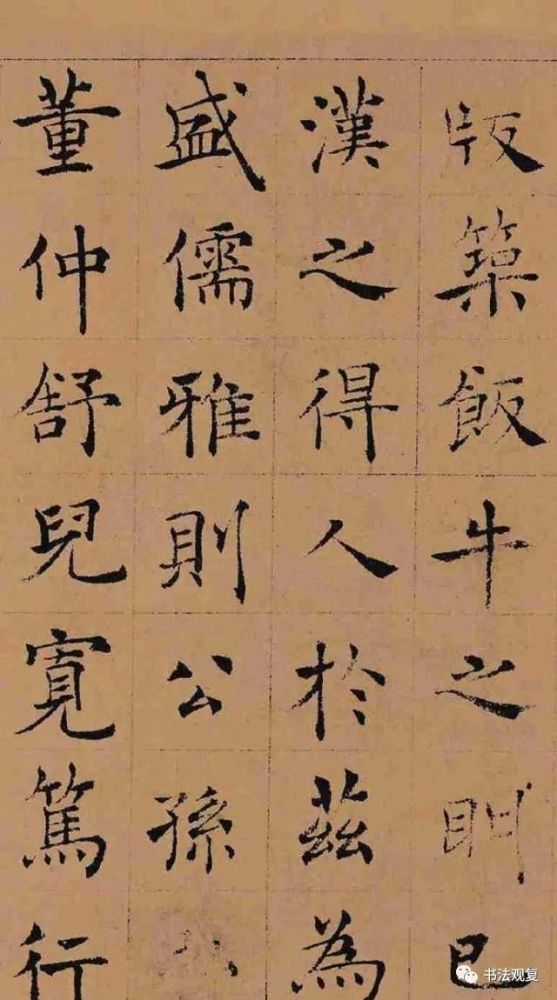 版築飯牛之朋已
漢之得人於茲為
盛儒雅則公孫
董仲舒兒寬篤行
书法观复